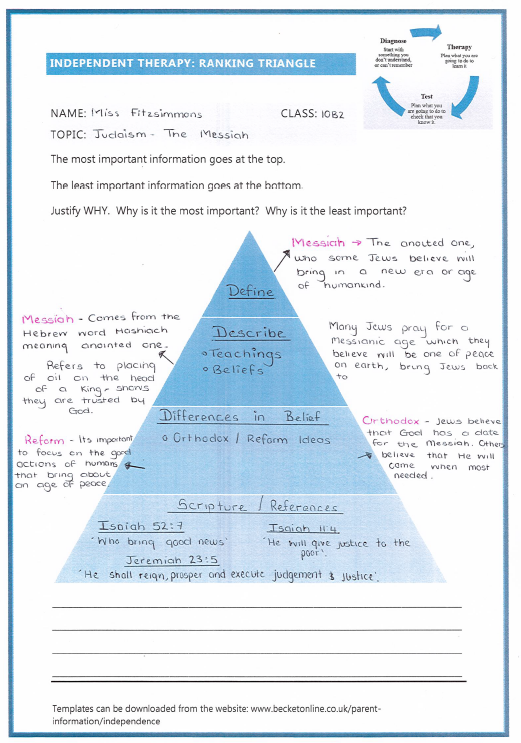 Diagnose
Start with
something you
don't understand,
or can't remember
Therapy
Plan what you are
going to do to
learn it
Test
Plan what you
are going to do to
check that you
know it
INDEPENDENT THERAPY: RANKING TRIANGLE
NAME: Miss Fitzsimmons CLASS: 10B2
TOPIC: Judaism - The Messiah
The most important information goes at the top.
The least important information goes at the bottom.
Justify WHY. Why is it the most important? Why is it the least important?
Messiah → The anoited one,
who some Jews believe will
bring in a new era or age
of humankind.
Define
Messiah - Comes from the
Hebrew word Hashiach
meaning anointed one.
Refers to placing
of oil on the head
of a King - shows
they are trusted by
God.
Describe
Teachings
Beliefs
Many Jews pray for a
Messianic age which they
believe will be one of peace
on earth, bring Jews back
to
Differences in Belief
Orthodox / Reform Ideas
Reform - Its important
to focus on the good
actions of humans
that bring about
an age of peace.
Orthodox - Jews believe
that God has a date
for the Messiah. Others
believe that He will
come when most
needed.
Scripture / References
Isaiah 52:7
'Who bring good news'
Isaiah 11:4
'He will give justice to the
poor'.
Jeremiah 23:5
'He shall reign, prosper and execute judgement & justice'.
Templates can be downloaded from the website: www.becketonline.co.uk/parent-
information/independence